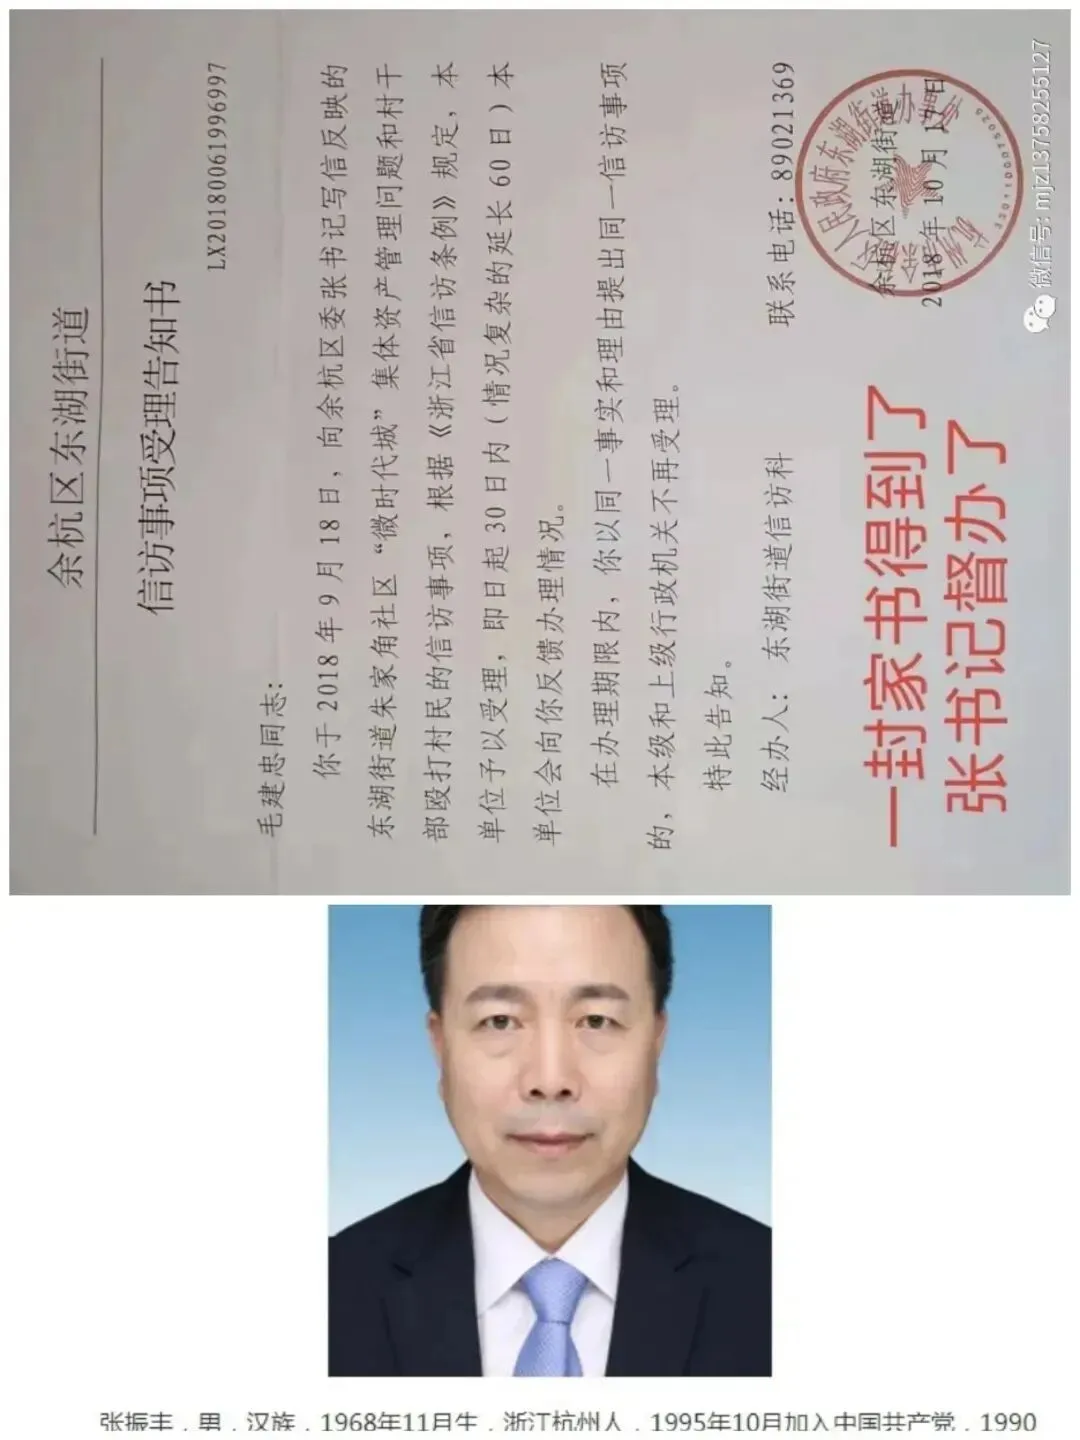 余杭区东湖街道
信访事项受理告知书
LX20180061996997
毛建忠同志：
你于 2018 年 9 月 18 日，向余杭区委张书记写信反映的
东湖街道朱家角社区“微时代城”集体资产管理问题和村干
部殴打村民的信访事项，根据《浙江省信访条例》规定，本
单位予以受理，即日起 30 日内（情况复杂的延长 60 日）本
单位会向你反馈办理情况。
在办理期限内，你以同一事实和理由提出同一信访事项
的，本级和上级行政机关不再受理。
特此告知。
经办人：东湖街道信访科
联系电话：89021369
余杭区东湖街道
2018 年 10 月 17 日
微信号: mjz13758255127
一封家书得到了
张书记督办了
张振丰，男，汉族，1968年11月生，浙江杭州人，1995年10月加入中国共产党，1990